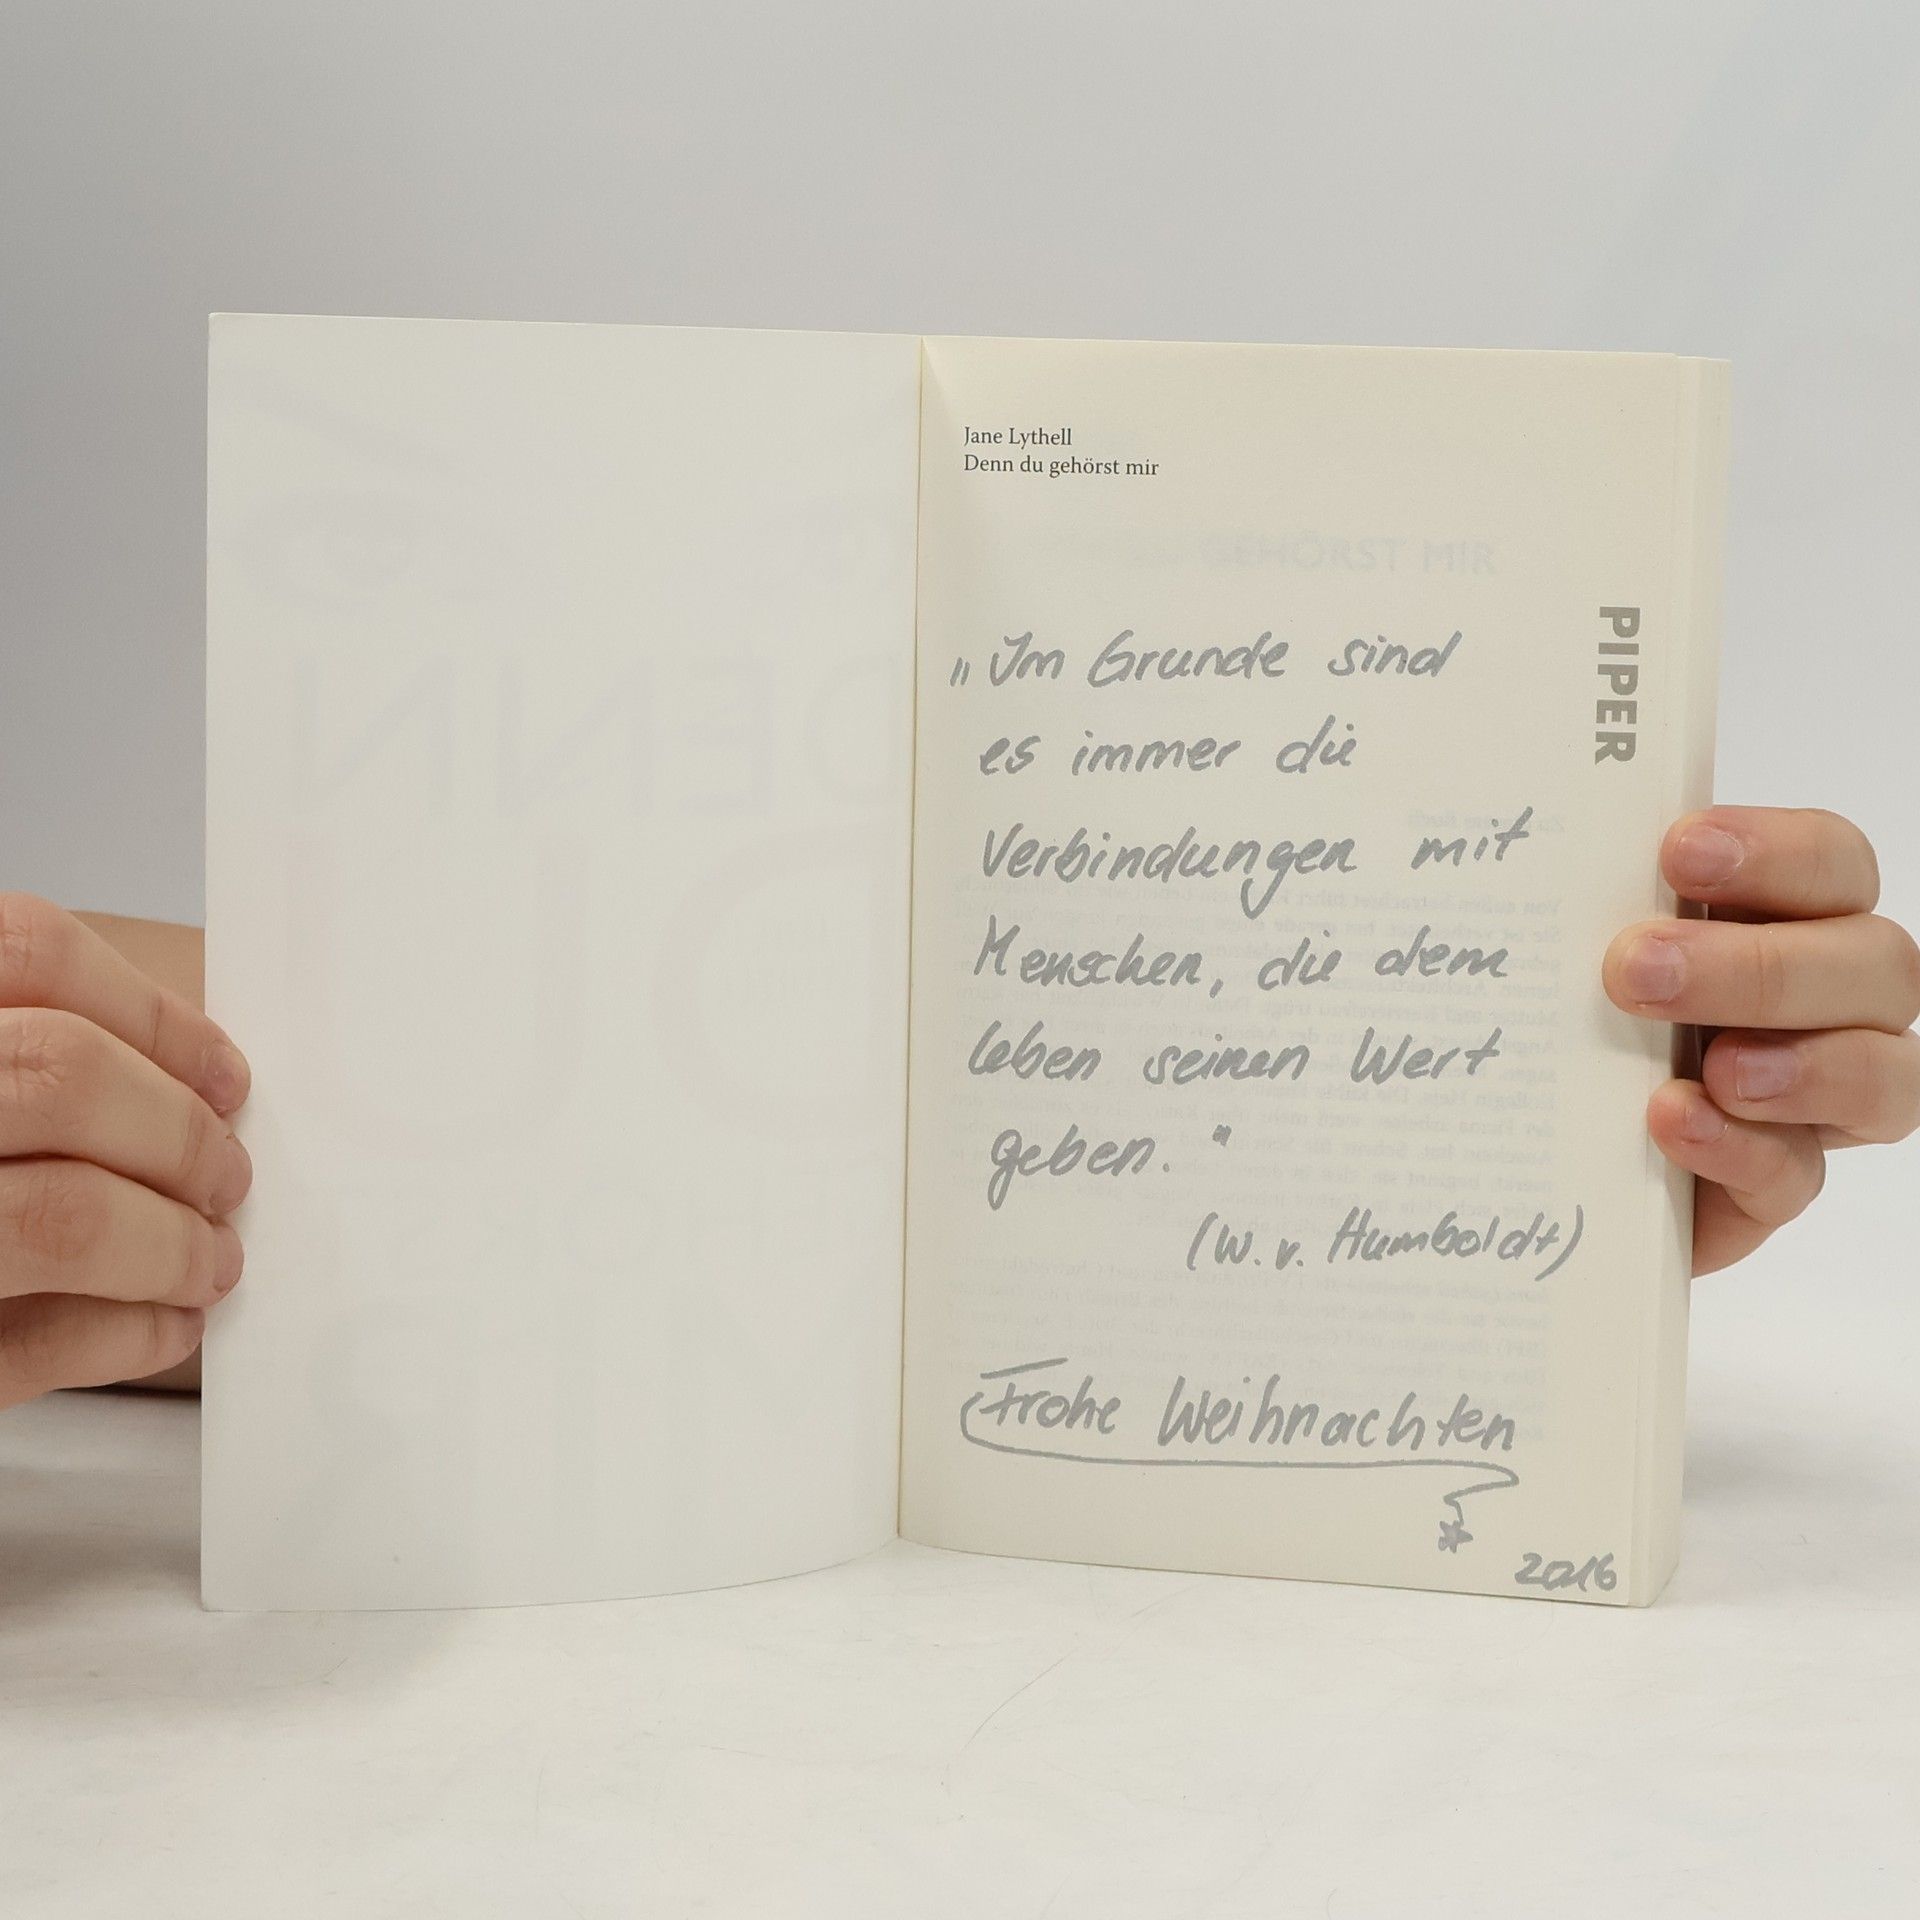 Jane Lythell
Denn du gehörst mir
GEHÖRST MIR
PIPER
„Im Grunde sind
es immer die
Verbindungen mit
Menschen, die dem
Leben seinen Wert
geben."
(W. v. Humboldt)
Frohe Weihnachten
2016